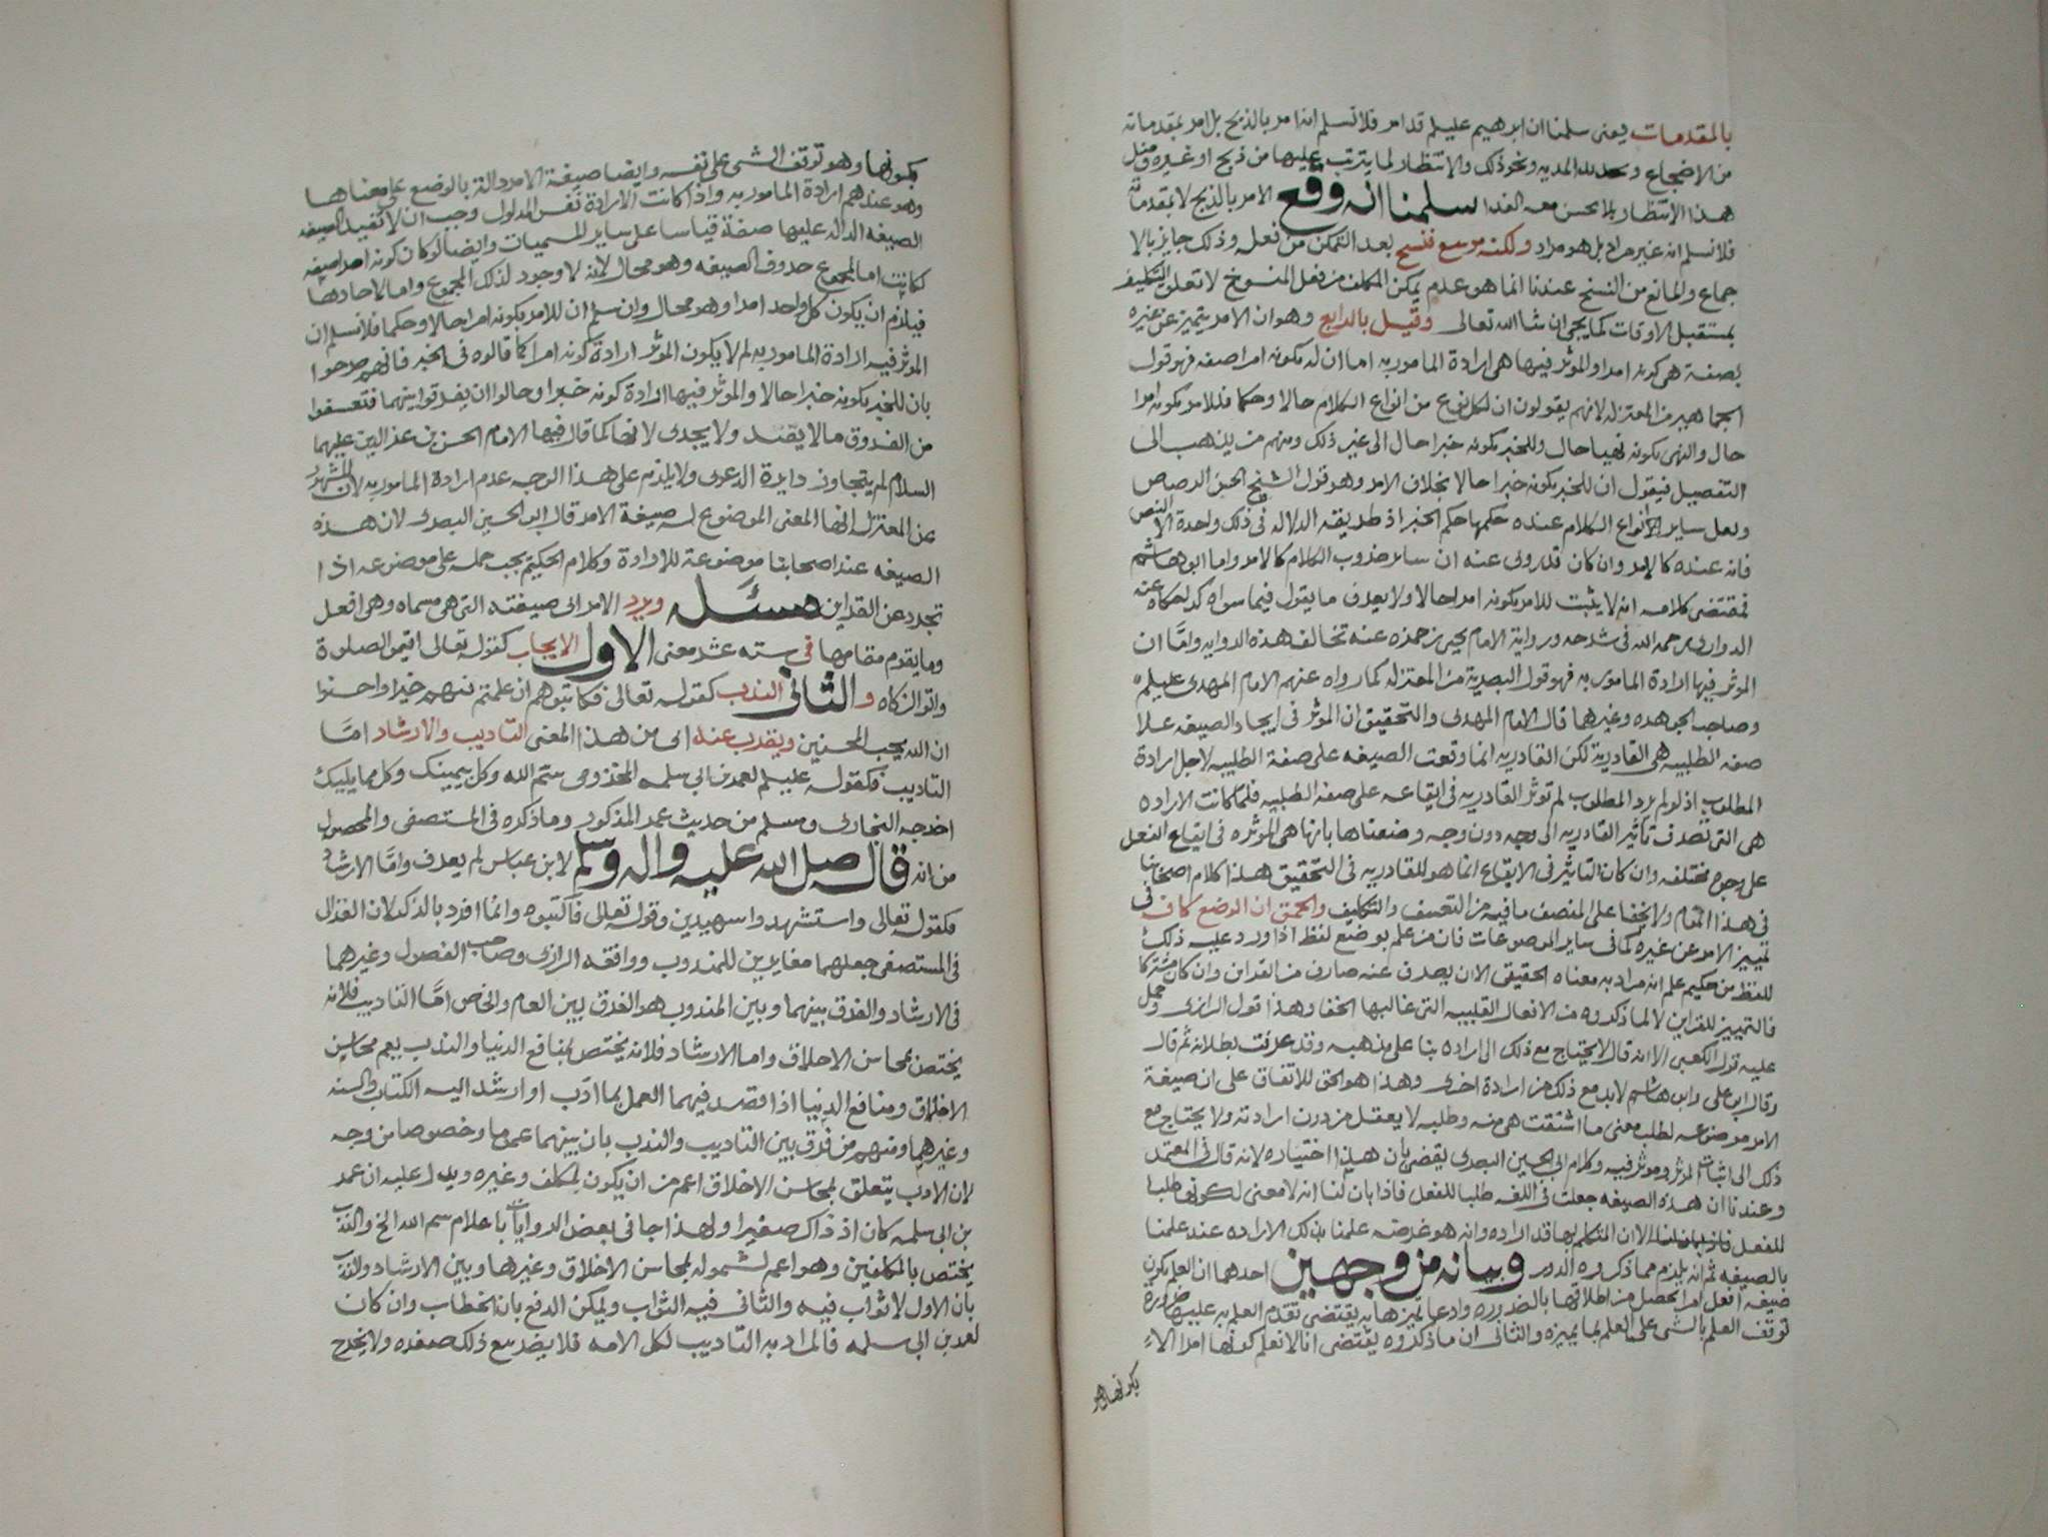 بالمقدمات يعنى سلمنا ان ابرهيم عليلم قد امر فلا نسلم انه امر بالذبح بل امر بمقدماته
من الاضجاع و المديه ونحو ذلك والانتظار لما يترتب عليها من ذبح او غيره ومثل
هذا الانتظار بلا يحسن معه الفدا سلمنا انه وقع الامر بالذبح لا بمقدماته
فلا نسلم انه غير مراد بل هو مراد ولكنه موسع فنسخ بعد التمكن من فعله وذلك جايز بالا
جماع والمانع من النسخ عندنا انما هو عدم تمكن المكلف من فعل المنسوخ لا تعلق التكليف
بمستقبل الاوقات كما يجى ان شا الله تعالى وقيل بالرابع وهو ان الامر يتميز عن غيره
بصفة هى كونه امرا والموثر فيها هى ارادة المامور به اما ان له بكونه امرا صفه فهو قول
الجماهير من المعتزله لانهم يقولون ان لكل نوع من انواع الكلام حالا وحكما فللامر بكونه امرا
حال والنهى بكونه نهيا حال وللخبر بكونه خبرا حال الى غير ذلك ومنهم من يذهب الى
التفصيل فيقول ان للخبر بكونه خبرا حالا بخلاف الامر وهو قول الشيخ الحسن الرصاص
ولعل ساير انواع الكلام عنده حكمها حكم الخبر اذ طريقه الدلاله فى ذلك واحدة الا
فانه عنده كالامر وان كان قد روى عنه ان ساير ضروب الكلام كالامر واما ابو هاشم
فمقتضى كلامه انه لا يثبت للامر بكونه امرا حالا ولا يعرف ما يقول فيما سواه كذا حكاه عنه
الدوارى رحمه الله فى شرحه ورواية الامام يحيى بن حمزه عنه تخالف هذه الروايه واما ان
الموثر فيها ارادة المامور به فهو قول البصرية من المعتزله كما رواه عنهم الامام المهدى عليلم
وصاحب الجوهره وغيرهما قال الامام المهدى والتحقيق ان الموثر فى ايجاد الصيغه علا
صفه الطلبيه هى القادرية لكن القادريه انما وقعت الصيغه على صفة الطلبيه لاجل ارادة
المطلوب اذ لو لم يرد المطلوب لم توثر القادريه فى ايقاعه على صفه الطلبيه فلما كانت الاراده
هى التى تصرف تاثير القادريه الى وجه دون وجه وصفناها بانها هى الموثره فى ايقاع الفعل
على وجوه مختلفه وان كان التاثير فى الايقاع انما هو للقادريه فى التحقيق هذا كلام اصحابنا
فى هذا المقام ولا يخفا على المنصف ما فيه من التعسف والتكليف والحق ان الوضع كاف فى
تمييز الامر عن غيره كما فى ساير الموضوعات فان من علم بوضع لفظ اذا ورد عليه ذلك
اللفظ من حكيم علم انه مراد به معناه الحقيقى الا ان يصرف عنه صارف من القراين وان كان مشتركا
فالتمييز للقراين لا لما ذكروه من الافعال القلبيه التى غالبها الخفا وهذا قول الرازى وحمل
عليه قول الكعبى الا انه قال لا يحتاج مع ذلك الى اراده بنا على مذهبه وقد عرفت بطلانه ثم قال
وقال ابو على وابو هاشم لا بد مع ذلك من ارادة اخرى وهذا هو الحق للاتفاق على ان صيغة
الامر موضوعه لطلب معنى ما اشتقت هى منه وطلبه لا يعقل من دون ارادته ولا يحتاج مع
ذلك الى اثبات الموثر وموثر فيه وكلام ابى الحسين البصرى يقضى بان هذا اختياره لانه قال فى المعتمد
وعندنا ان هذه الصيغه جعلت فى اللغه طلبا للفعل فاذا بان لنا انه لا معنى لكونها طلبا
للفعل الا ان المتكلم بها قد اراده وانه هو غرضه علمنا بذلك الاراده عند علمنا
بالصيغه ثم انه يلزم مما ذكروه الدور وبيانه من وجهين احدهما ان العلم بكون
صيغه افعل امرا يحصل من اطلاقها بالضروره وادعا تميزها به يقتضى تقدم العلم به عليها ضرورة
توقف العلم بالشى على العلم بما يميزه والثانى ان ما ذكروه يقتضى انا لا نعلم كونها امرا الا
بكونها وهو توقف الشى على نفسه وايضا صيغة الامر دالة بالوضع على معناها
وهو عندهم ارادة المامور به واذا كانت الارادة نفس المدلول وجب ان لا تفيد الصيغه
الصيغه الداله عليها صفة قياسا على ساير المسميات وايضا لو كان كونه امرا صفه
لكانت اما لمجموع حروف الصيغه وهو محال لانه لا وجود لذلك المجموع واما لاحادها
فيلزم ان يكون كل واحد امرا وهو محال وان سلم ان للامر بكونه امرا حالا وحكما فلا نسلم ان
الموثر فيه ارادة المامور به لم لا يكون الموثر ارادة كونه امرا كما قالوه فى الخبر فانهم صرحوا
بان للخبر بكونه خبرا حالا والموثر فيها ارادة كونه خبرا وحالوا ان يفرقوا بينهما فتعسفوا
من الفروق ما لا يفيد ولا يجدى لانها كما قال فيها الامام الحسن بن عز الدين عليهما
السلام لم يتجاوز دايرة الدعوى ولا يلزم على هذا الوجه عدم ارادة المامور به لان المشهور
عن المعتزله انها المعنى الموضوع له صيغة الامر قال ابو الحسين البصرى لان هذه
الصيغه عند اصحابنا موضوعة للارادة وكلام الحكيم يجب حمله على موضوعه اذا
تجرد عن القراين مسئله ويرد الامر اى صيغته التى هى مسماه وهى افعل
وما يقوم مقامها فى سته عشر معنى الاول الايجاب كقوله تعالى اقيموا الصلوة
واتوا الزكاه و الثانى الندب كقوله تعالى فكاتبوهم ان علمتم فيهم خيرا واحسنوا
ان الله يحب المحسنين ويقرب عنه اى من هذا المعنى التاديب والارشاد امّا
التاديب فكقوله عليلم لعمر بن ابى سلمه المخزومى سم الله وكل بيمينك وكل مما يليك
اخرجه البخارى ومسلم من حديث عمر المذكور وما ذكره فى المستصفى والمحصول
من انه قال صلى الله عليه واله وسلم لابن عباس لم يعرف وامّا الارشاد
فكقوله تعالى واستشهدوا شهيدين وقوله تعالى فاكتبوه وانما افرد بالذكر لان الغزالى
فى المستصفى جعلهما مغايرين للمندوب ووافقه الرازى وصاحب الفصول وغيرهما
فى الارشاد والفرق بينهما وبين المندوب هو الفرق بين العام والخاص امّا التاديب فلانه
يختص بمحاسن الاخلاق واما الارشاد فلانه يختص بمنافع الدنيا والندب يعم محاسن
الاخلاق ومنافع الدنيا اذا قصد فيهما العمل بما ادّب او ارشد اليه الكتاب والسنه
وغيرهما ومنهم من فرق بين التاديب والندب بان بينهما عموما وخصوصا من وجه
لان الادب يتعلق بمحاسن الاخلاق اعم من ان يكون لمكلف وغيره ويدل عليه ان عمر
بن ابى سلمه كان اذ ذاك صغيرا ولهذا جا فى بعض الروايات يا غلام سم الله الخ والندب
يختص بالمكلفين وهو اعم لشموله لمحاسن الاخلاق وغيرها وبين الارشاد والندب
بان الاول لا ثواب فيه والثانى فيه الثواب ويمكن الدفع بان الخطاب وان كان
لعمر بن ابى سلمه فالمراد به التاديب لكل الامه فلا يضر مع ذلك صغره ولا يخرج